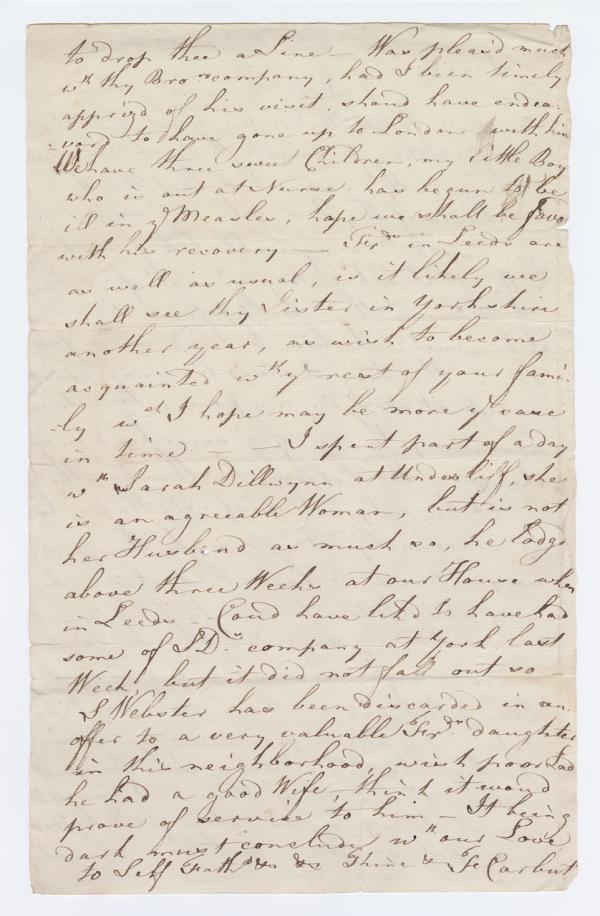 to drop thee a Line — Was pleas'd much
wth thy Bror company, had I been timely
appriz'd of his visit, shoud have endea-
-vord to have gone up to London with him
We have three sweet Children, my little Boy
who is out at Nurse has begun to be
ill in ye Measles, hope we shall be favo
with his recovery — Frds in Leeds are
as well as usual, is it likely we
shall see thy Sister in Yorkshire
another year, as wish to become
acquainted wth ye rest of your fami-
-ly wch I hope may be more ye case
in time — — I spent part of a day
wth Sarah Dillwynn at Undercliff, she
is an agreeable Woman, but is not
her Husband as much so, he lodgd
above three Weeks at our House when
in Leeds — Coud have lik'd to have had
some of SD's company at York last
Week, but it did not fall out so
S Webster has been discarded in an
offer to a very valuable Frds daughter
in this neighborhood, wish poor Lad
he had a good Wife, think it woud
prove of service to him — It being
dark must conclude wth our Love
to Self Fathr & &c Thine &